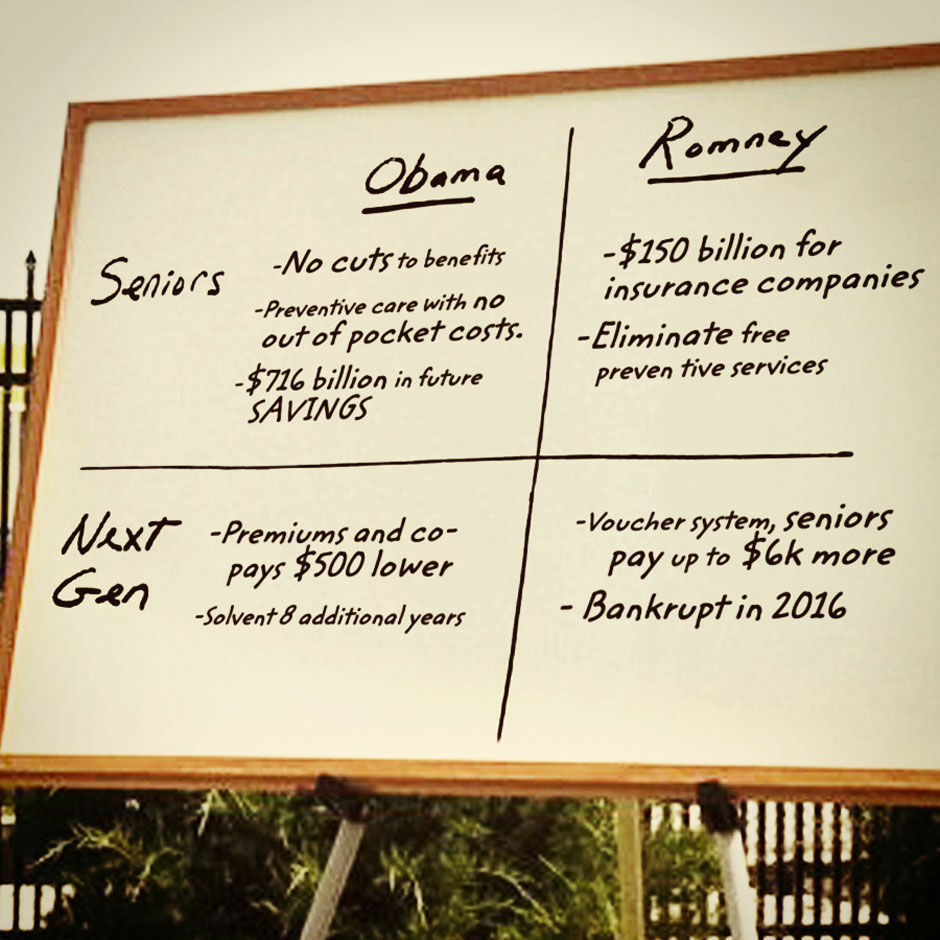 Obama
Romney
Seniors
-No cuts to benefits
-Preventive care with no
out of pocket costs.
-$716 billion in future
SAVINGS
-$150 billion for
insurance companies
-Eliminate free
preven tive services
Next
Gen
-Premiums and co-
pays $500 lower
-Solvent 8 additional years
-Voucher system, seniors
pay up to $6k more
- Bankrupt in 2016